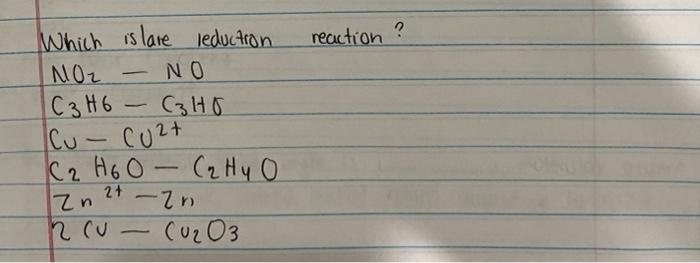 Which is/are reduction reaction?
NO2 — NO
C3H6 — C3H8
Cu — Cu2+
C2H6O — C2H4O
Zn2+ — Zn
2 Cu — Cu2O3